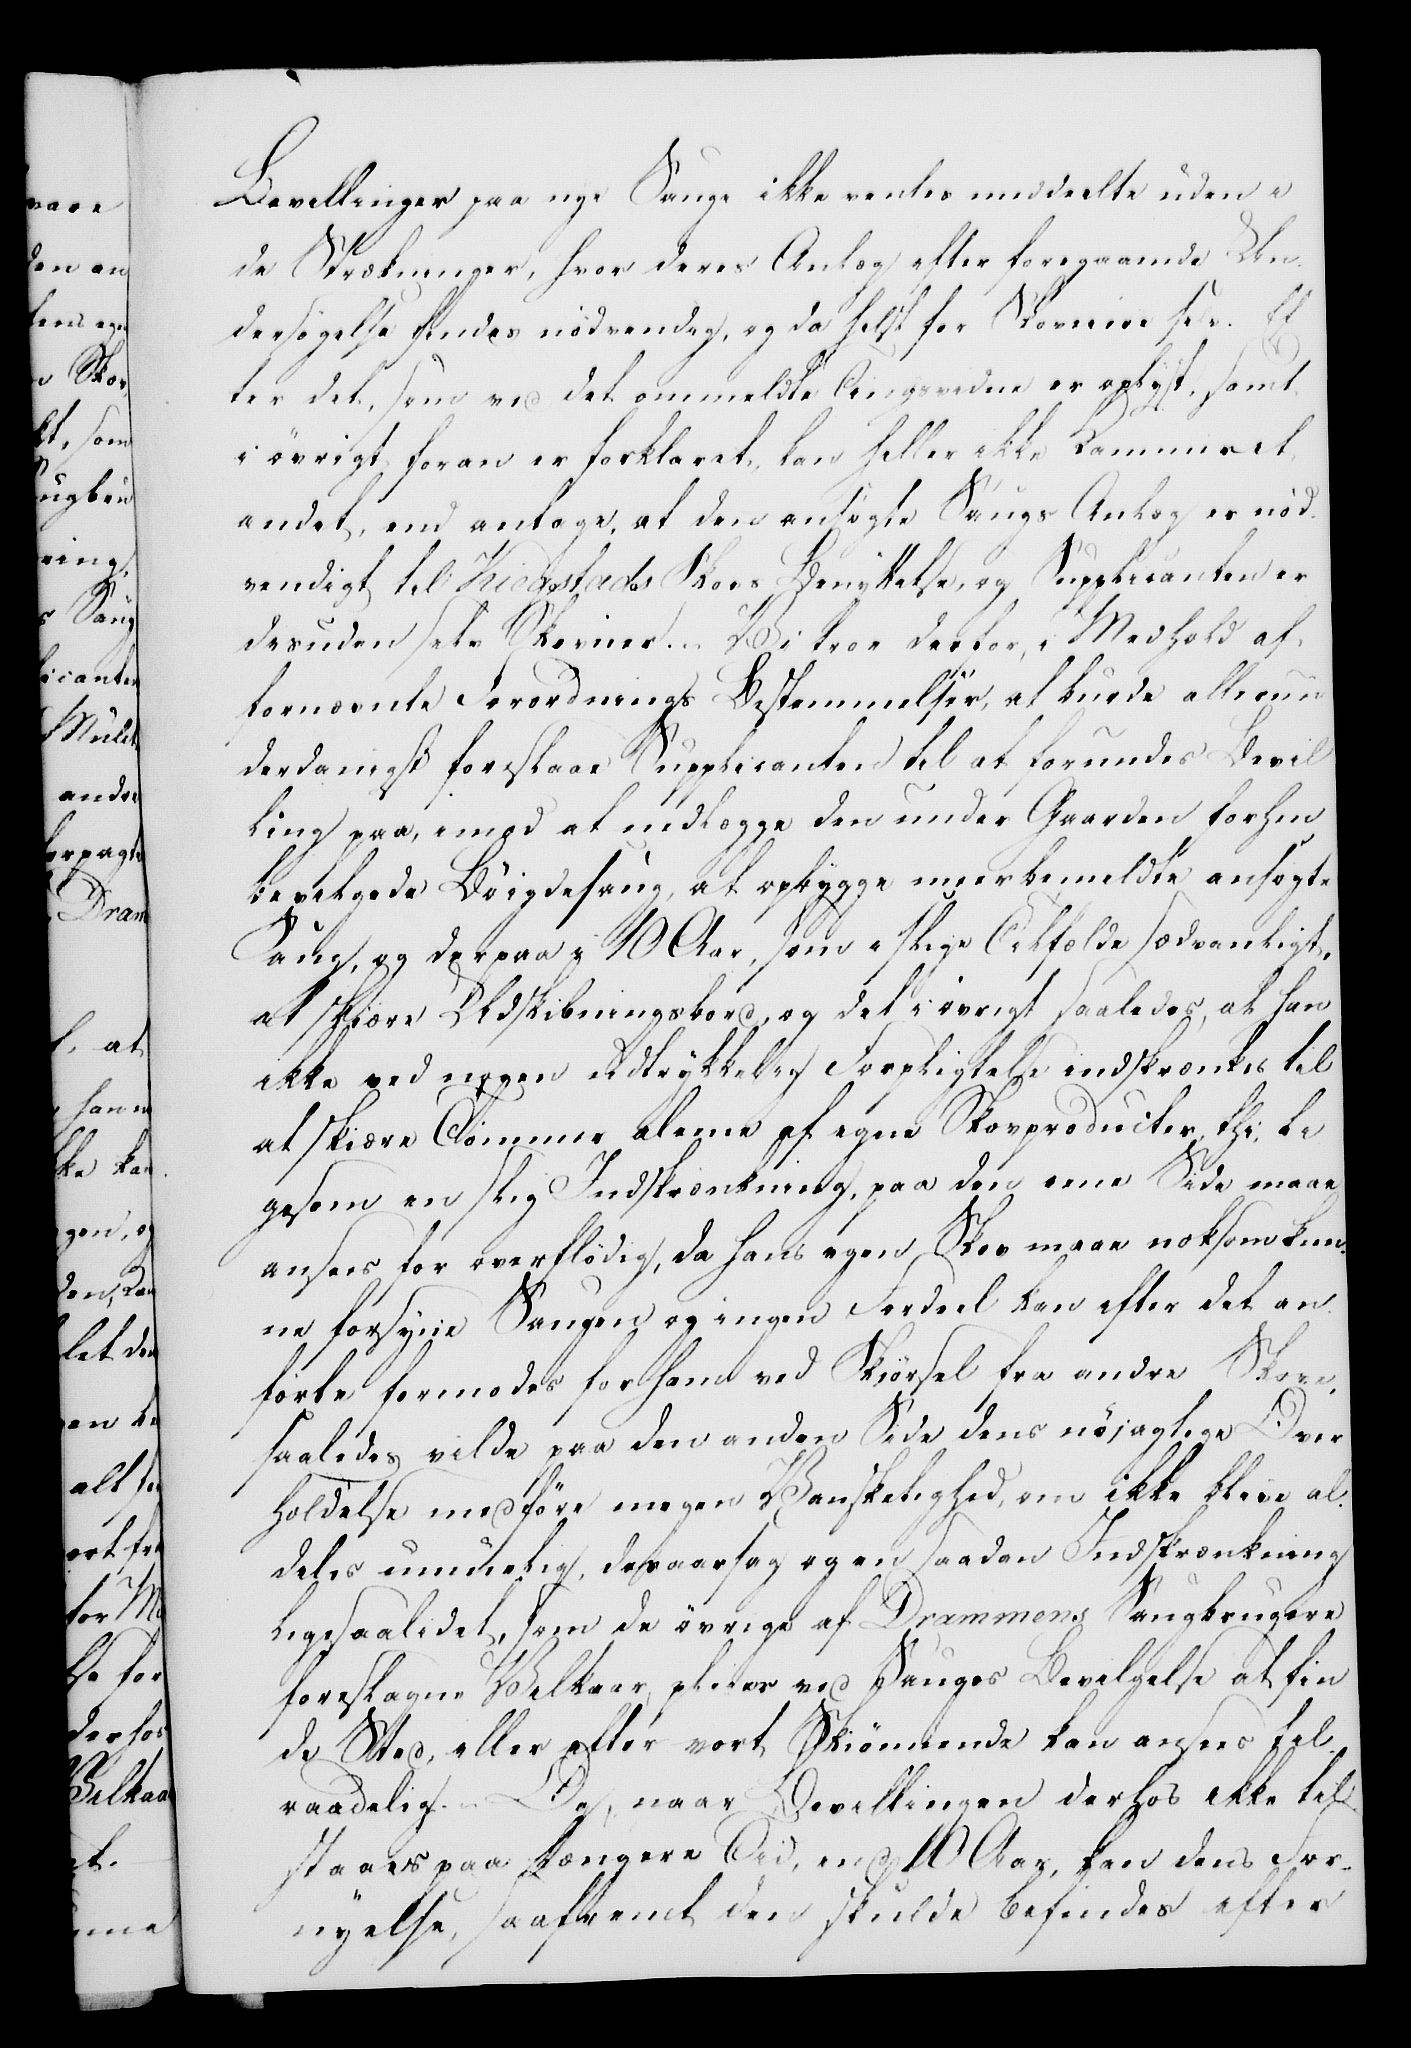 Bevillinger paa nye Sauge ikke ventes meddeelte uden i
de Strækninger, hvor deres Anlæg efter foregaaende Un-
dersögelse findes nödvendig, og da helst for Skovene selv. Ef
ter det, som ved det ommeldte Tingsvidne er oplyst, samt
i övrigt foran er forklaret, kan heller ikke Kammeret
andet, end antage, at den ansögte Saugs Anlæg er nöd-
vendigt til Kiegstads Skovs Benyttelse, og Supplicanten er
desuden selv Skovejer. Vi troe derfor, i Medhold af
fornævnte Forordnings Bestemmelser, at burde allerun
derdanigst foreslaae Supplicanten til at forundes Bevil
ling paa, imod at nedlægge den under Gaarden forhen
bevilgede Böigdesaug, at opbygge meerbemeldte ansögte
Saug, og derpaa i 10 Aar, som i slige Tilfælde sædvanligt,
at skiære Udskibningsbord, og det i övrigt saaledes, at han
ikke ved nogen udtrykkelig Forpligtelse indskrænkes til
at skiære Tömmer alene af egne Skovproducter, thi, li
gesom en slig Indskrænkning, paa den eene Side maae
ansees for overflödig, da hans egen Skov maae noksom kun-
ne forsyne Saugen og ingen Fordeel kan efter det an
förte formodes for ham ved Kiörsel fra andre Skove,
saaledes vilde paa den anden Side dens nöjagtige Over
holdelse medföre megen Vanskelighed, om ikke blive al-
deles umuelig, desaarsag og en saadan Indskrænkning
ligesaalidet, som de övrige af Drammens Saugbrugere
foreslagne Vilkaar, pleier ved Sauges Bevilgelse at fin
de Sted, eller efter vort Skiönnende kan ansees til-
raadelig. Og, naar Bevillingen derhos ikke til-
staaes paa længere Tid, end 10 Aar, kan dens For-
nyelse, saafremt den skulde befindes efter